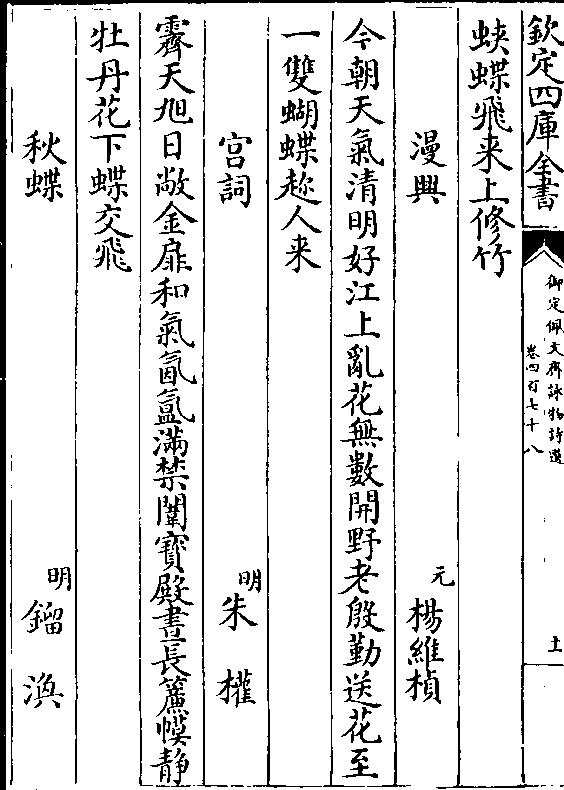 欽定四庫全書
御定佩文齋詠物詩選
卷四百七十八
土
蛺蝶飛来上修竹
漫興
元
楊維楨
今朝天氣清明好江上亂花無數開野老殷勤送花至
一雙蝴蝶趂人来
宫詞
明
朱權
霽天旭日敞金扉和氣氤氲滿禁闈寶殿晝長簾幙静
牡丹花下蝶交飛
秋蝶
明
鎦渙